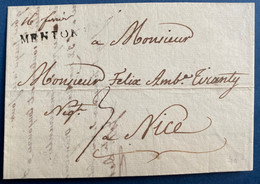 16 fevrier
MENTON
à Monsieur
Monsieur Felix Amb.e Tiranty
Negt.
à Nice